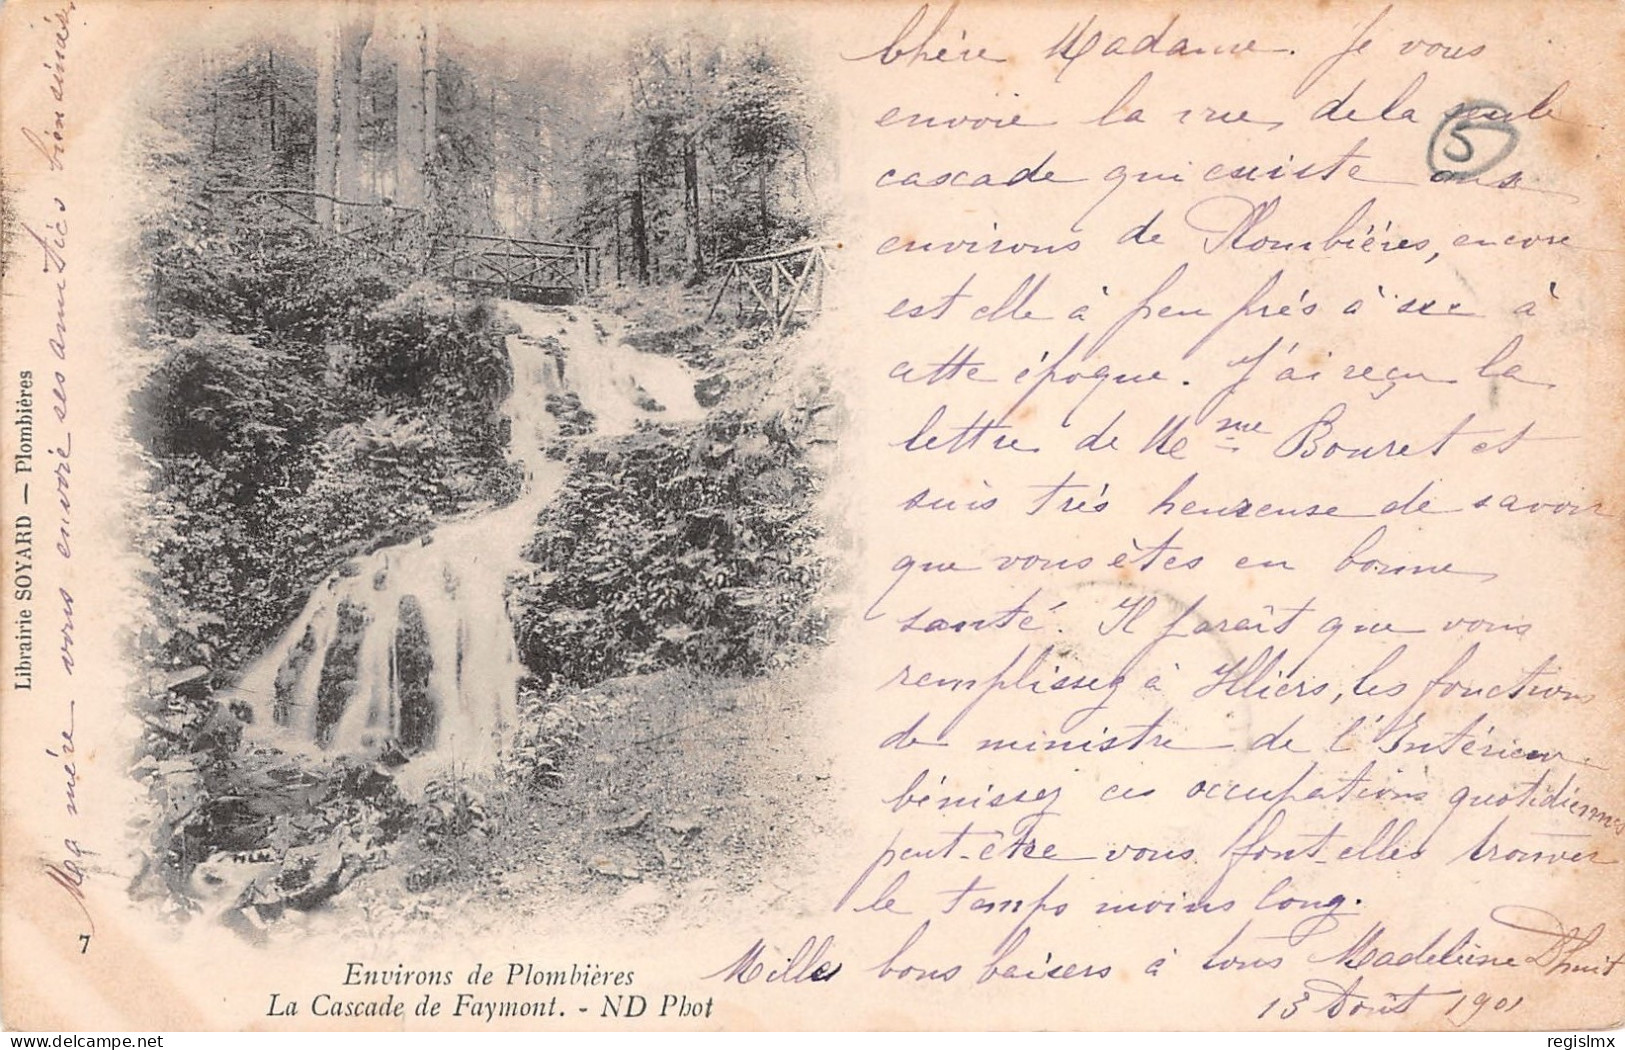 Chère Madame. Je vous
envoie la vue de la seule
cascade qui existe aux
environs de Plombières, encore
est elle à peu près à sec à
cette époque. J'ai reçu la
lettre de Mme Bouret et
suis très heureuse de savoir
que vous êtes en bonne
santé. Il paraît que vous
remplissez à Illiers, les fonctions
de ministre de l'Intérieur
bénissez ces occupations quotidiennes
peut-être vous font-elles trouver
le temps moins long.
Milles bons baisers à tous Madeleine
13 Août 1901
Ma mère vous envoie ses amitiés bien
5
Librairie SOYARD — Plombières
7
Environs de Plombières
La Cascade de Faymont. - ND Phot
regislmx